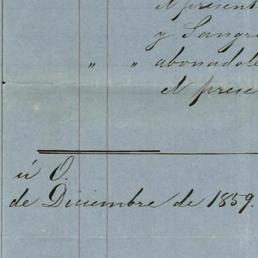 N present
y Sangr
" " abonadole
N prese
ú O.
de Diciembre de 1859.